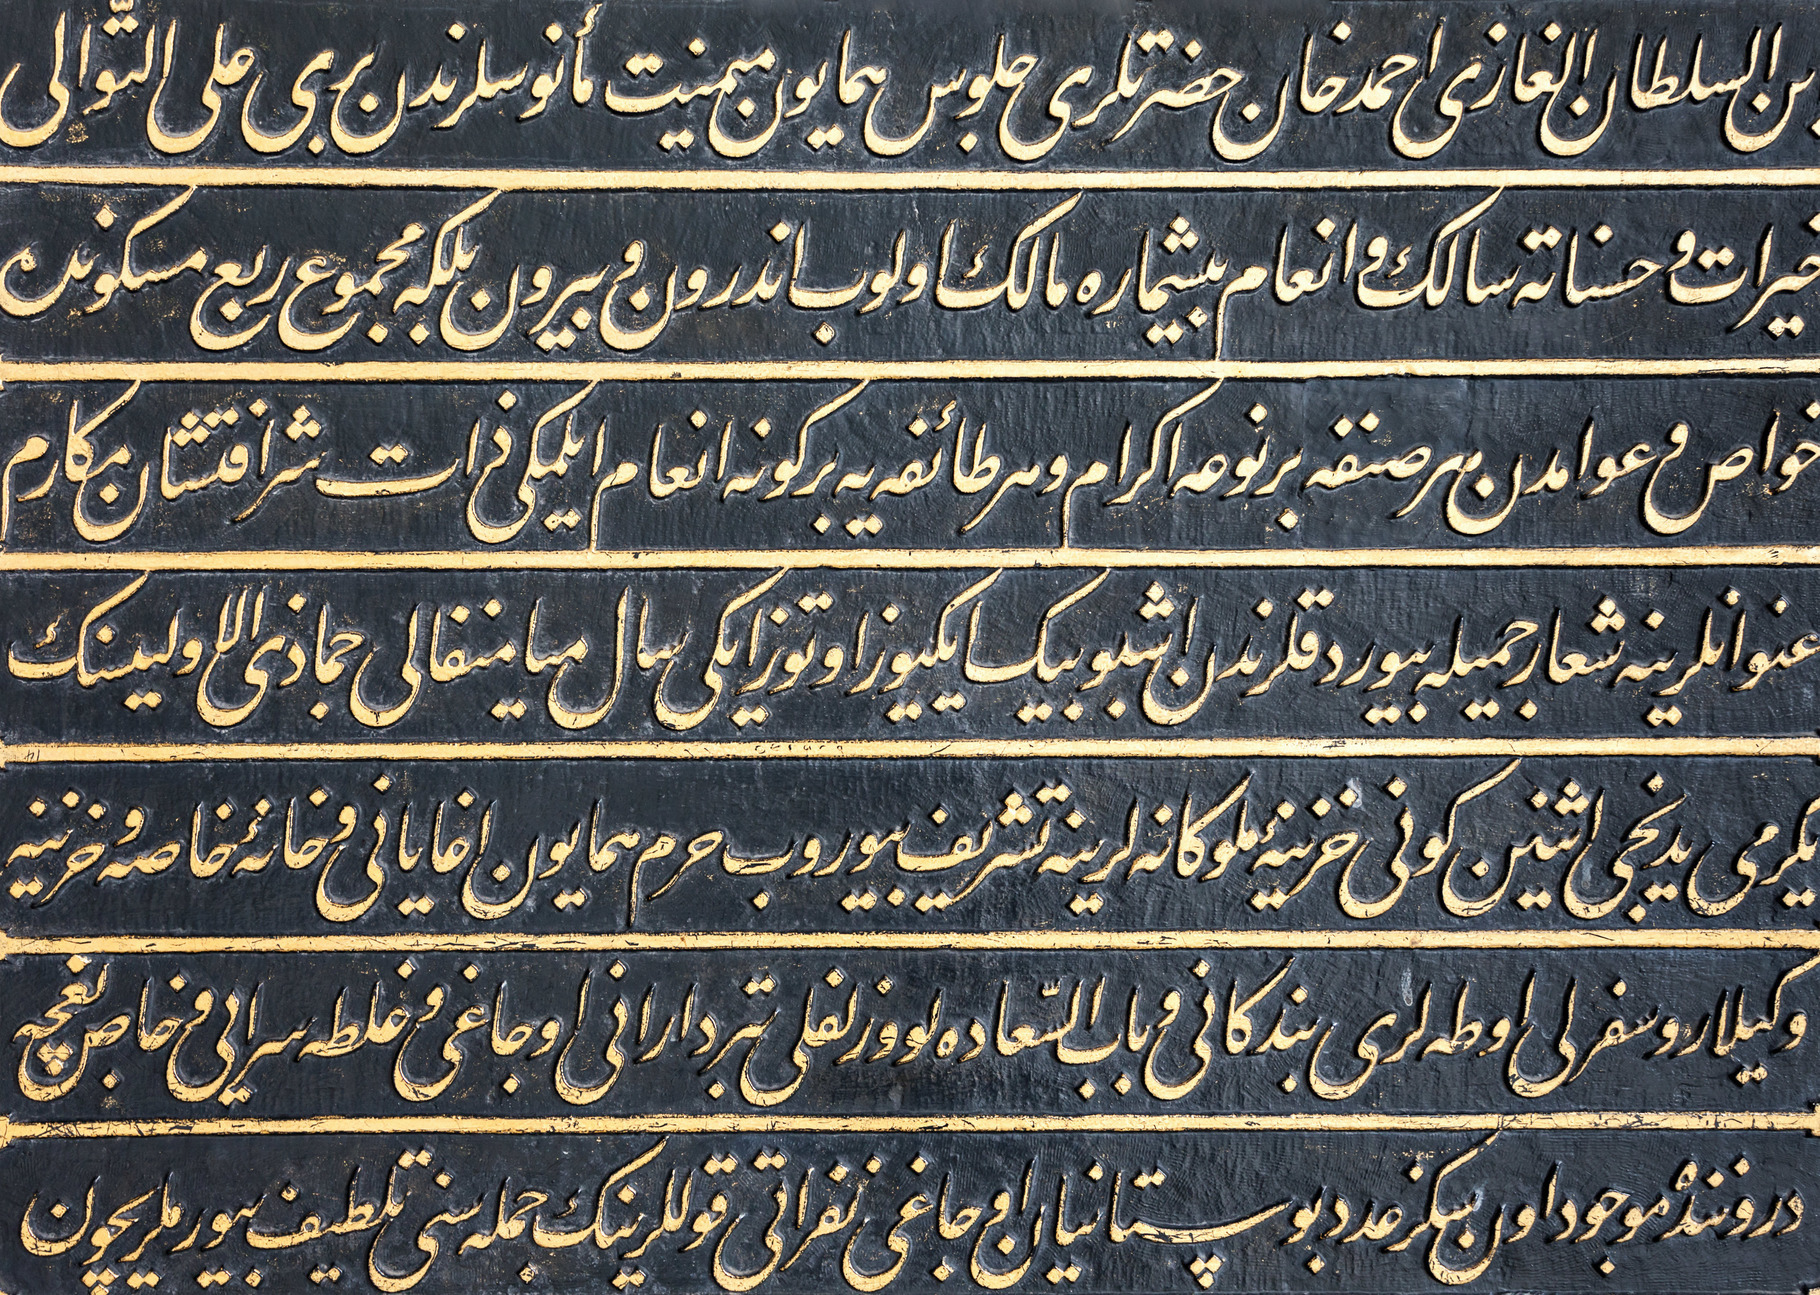 بن السلطان الغازی احمد خان حضرتلری جلوس همایون میمنت مأنوسلرندن بری علی التّوالی
خیرات و حسناته سالك و انعام بیشماره مالك اولوب اندرون و بیرون بلکه مجموع ربع مسکونده
خواص و عوامدن هر صنفه بر نوعه اکرام و هر طائفه یه بر کونه انعام ایلمکی ذات شرافتشان مکارم
عنوانلرینه شعار جمیله بیوردقلرندن اشبو بیك ایکیوز اوتوز ایکی سال میامنفالی جماذی الاولیسنك
یکرمی یدنجی اثنین کونی خزینۀ ملوکانه لرینه تشریف بیوروب حرم همایون اغایانی و خانه خاصه و خزینه
وکیلار و سفرلی اوطه لری بندکانی و باب السّعاده لو و زلفلی تبردارانی اوجاغی و غلطه سرایی و خاص بغچه
درونندۀ موجود اون سکز عدد بوستانیان اوجاغی نفراتی قوللرینك جمله سنی تلطیف بیوررملریچون